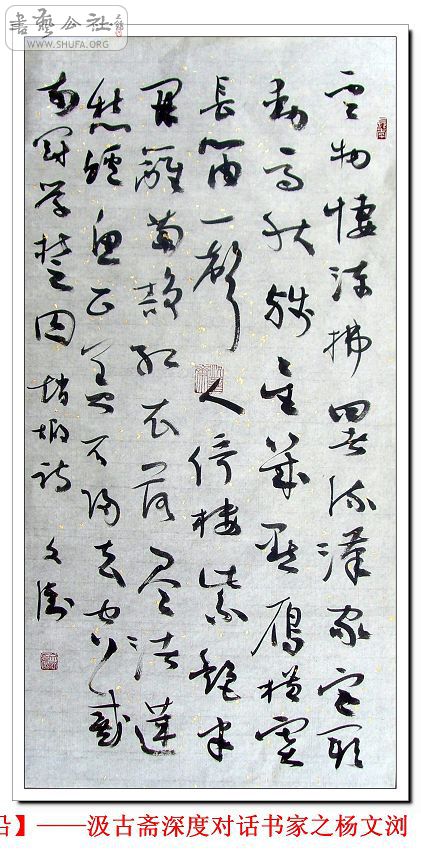 書藝公社
WWW.SHUFA.ORG
云物悽凉拂曙流漢家宫阙
動高秋残星几点雁横塞
長笛一聲人倚楼紫艳半
開籬菊静红衣落尽渚蓮
愁鲈鱼正美不归去空戴
南冠学楚囚 赵嘏诗 文浏
】——汲古斋深度对话书家之杨文浏